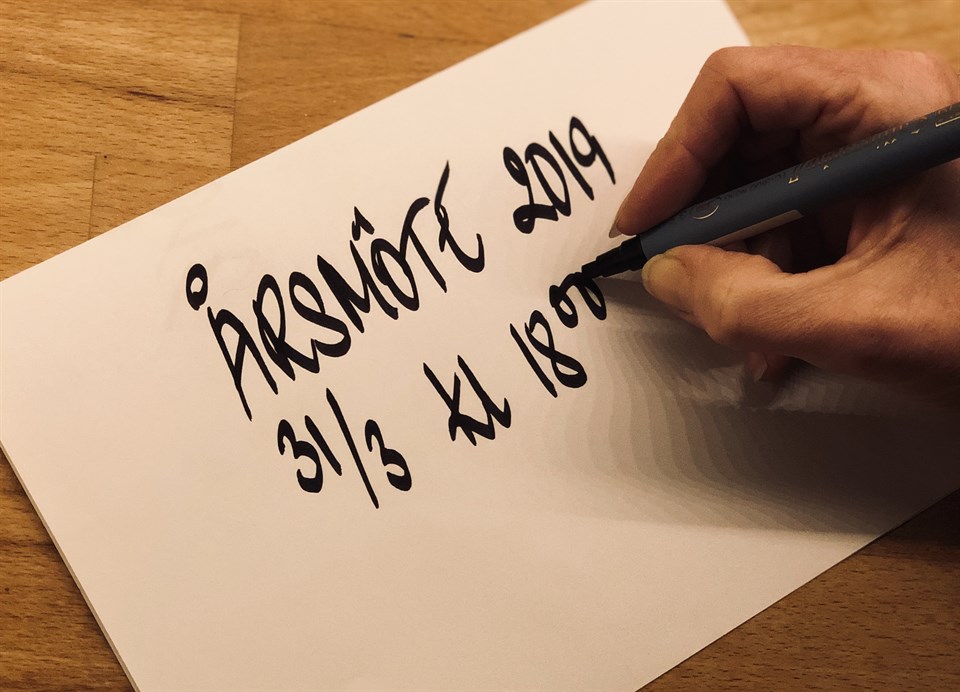 ÅRSMÖTE 2019
31/3 kl 18⁰⁰